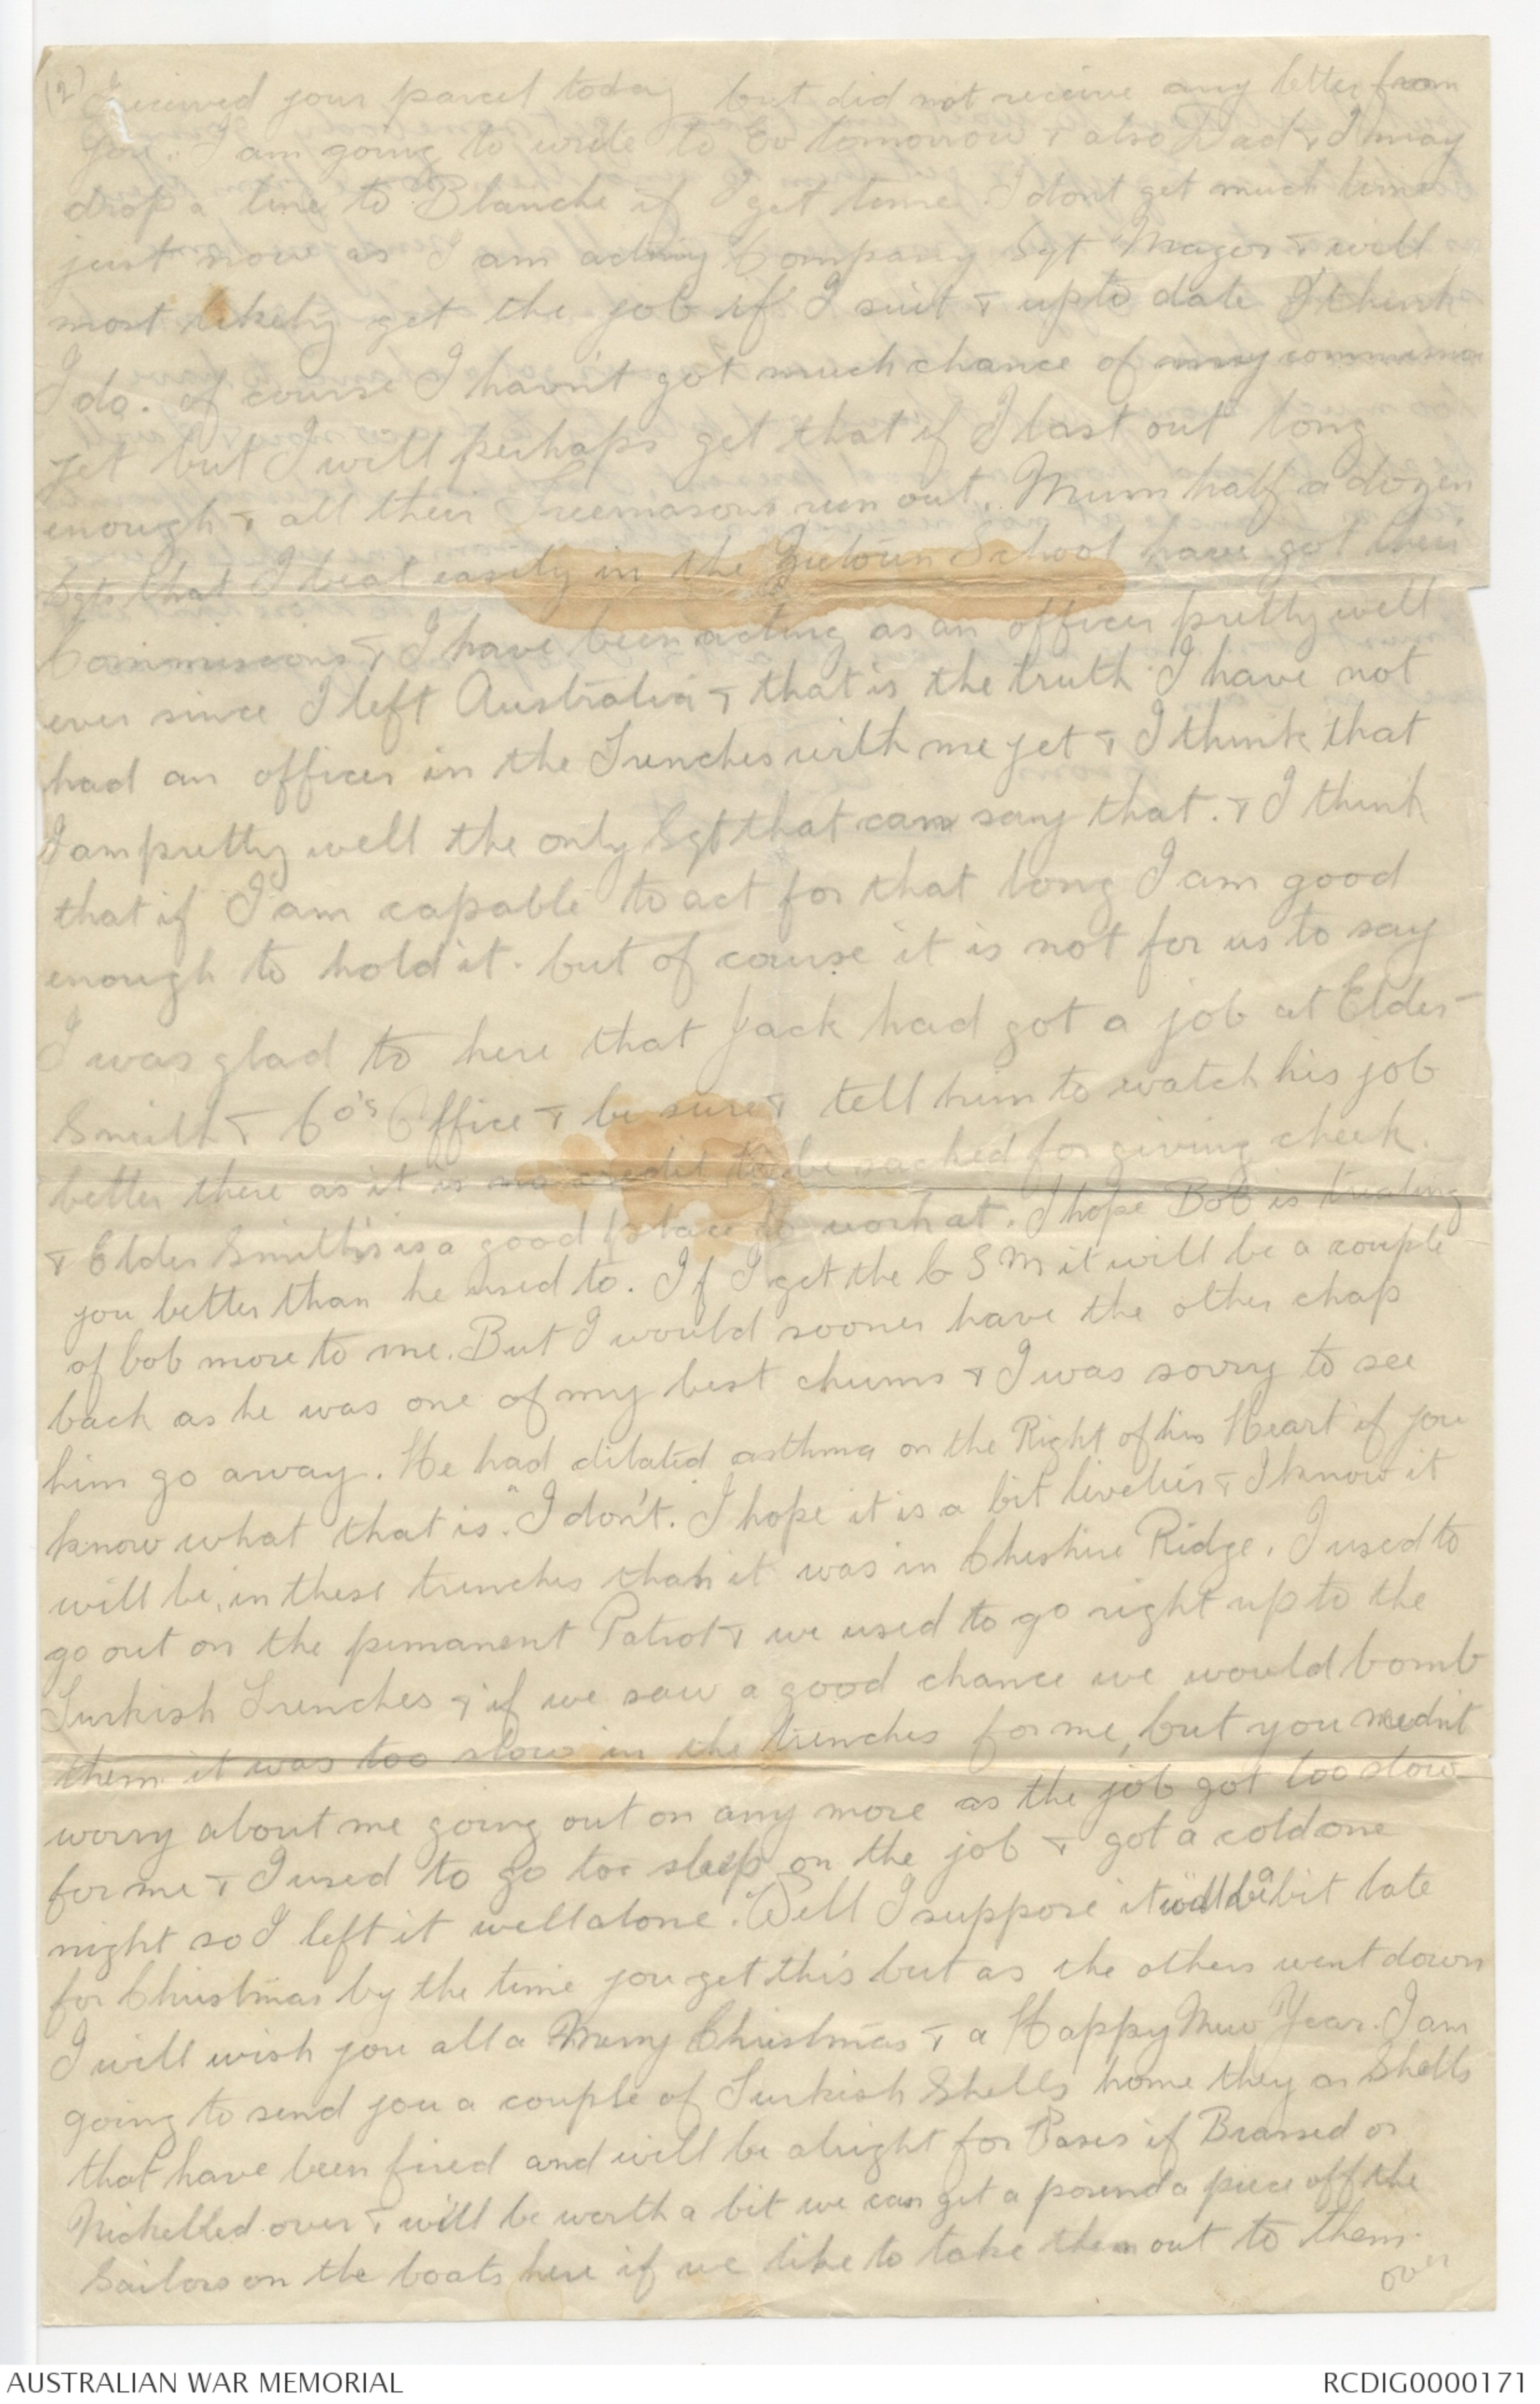 (2) I received your parcel today but did not receive any letter from
you. I am going to write to Ev tomorrow & also Dad & I may
drop a line to Blanche if I get time. I dont get much time
just now as I am acting Company Sgt Major & will
most likely get the job if I suit & upto date I think
I do. of course I havn't got much chance of my commission
yet but I will perhaps get that if I last out long
enough & all their Freemasons run out. Mum half a dozen
Sgts that I beat easily in the School have got their
Commissions & I have been acting as an officer pretty well
ever since I left Australia & that is the truth I have not
had an officer in the Trenches with me yet & I think that
I am pretty well the only Sgt that can say that. & I think
that if I am capable to act for that long I am good
enough to hold it. but of course it is not for us to say
I was glad to here that Jack had got a job at Elder
Smith & Co's Office & be sure & tell him to watch his job
better there as it is no credit to be sacked for giving cheek.
& Elder Smith's is a good place to work at. I hope Bob is treating
you better than he used to. If I get the C S M it will be a couple
of bob more to me. But I would sooner have the other chap
back as he was one of my best chums & I was sorry to see
him go away. He had dilated asthma on the Right of his Heart if you
know what that is. "I don't." I hope it is a bit livelier & I know it
will be, in these trenches than it was in Cheshire Ridge. I used to
go out on the permanent Patrol & we used to go right up to the
Turkish Trenches & if we saw a good chance we would bomb
them it was too slow in the trenches for me, but you needn't
worry about me going out on any more as the job got too slow
for me & I used to go too sleep on the job & got a cold one
night so I left it well alone. Well I suppose it will be a bit late
for Christmas by the time you get this but as the others went down
I will wish you all a Merry Christmas & a Happy New Year. I am
going to send you a couple of Turkish Shells home they are Shells
that have been fired and will be alright for Vases if Brassed or
Nickelled over & will be worth a bit we can get a pound a piece off the
Sailors on the boats here if we like to take them out to them.
over
AUSTRALIAN WAR MEMORIAL
RCDIG0000171